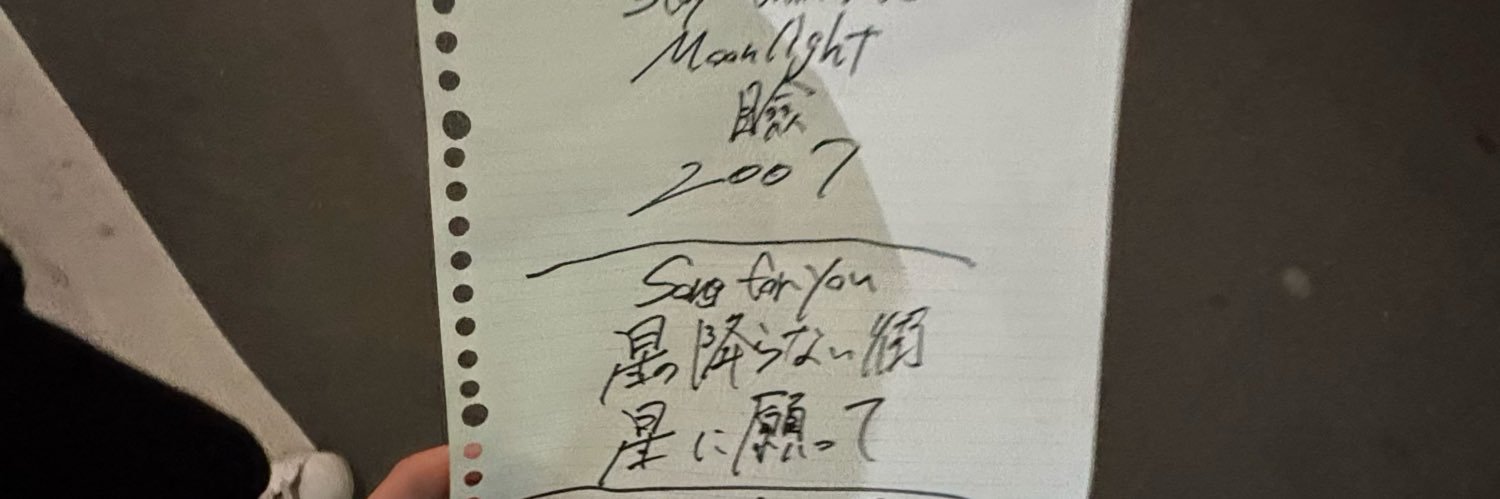 Moonlight
瞼
2007
Song for you
星の降らない街
星に願って